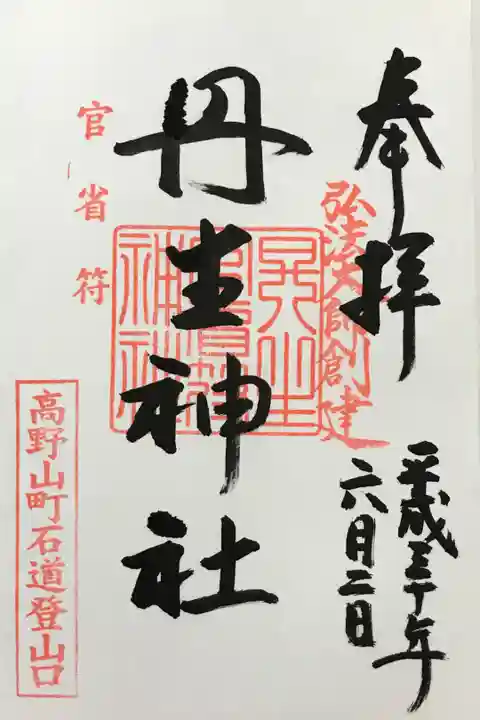 奉拝
弘法大師創建
平成三十年
六月二日
丹生神社
官省符
高野山町石道登山口